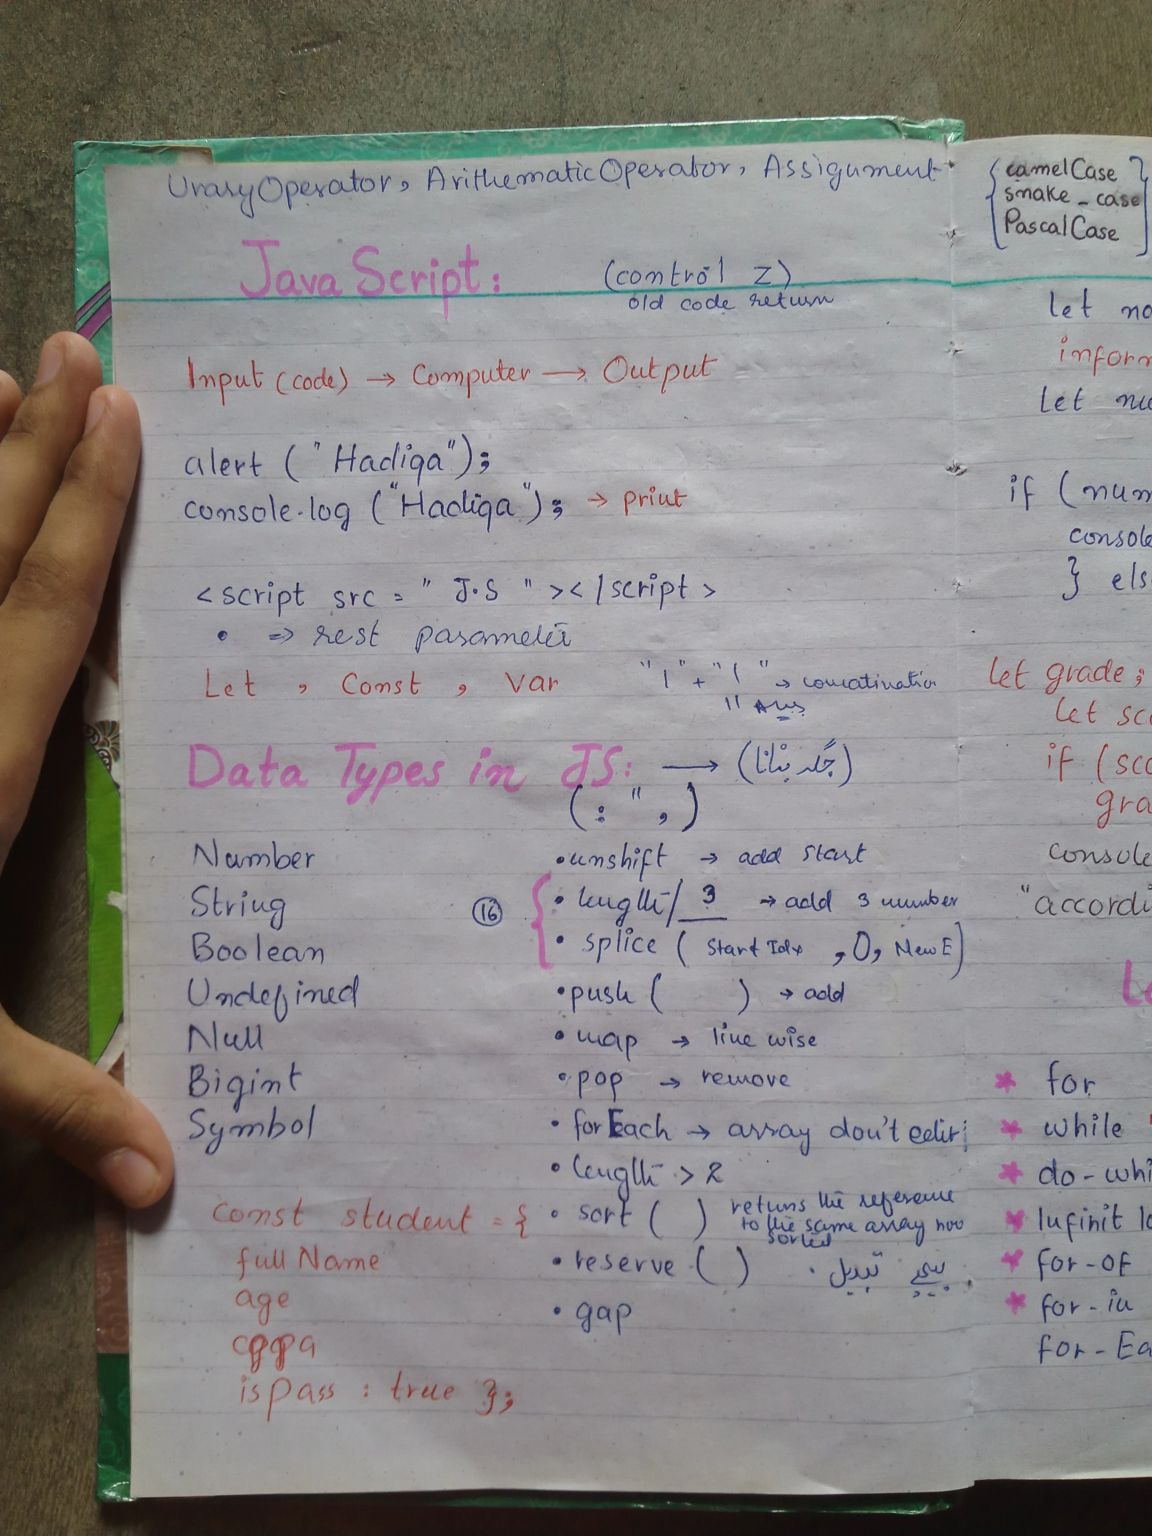 Unary Operator, Arithematic Operator, Assignment
Java Script:
(control Z)
old code return
Input (code) → Computer → Output
alert ("Hadiqa");
console.log ("Hadiqa"); → print
<script src = " J.S " ></script>
• => rest parameter
Let , Const , Var
"1" + "1" → concatination
11 Ans
Data Types in JS: → (جگہ بنانا)
(: " ,)
Number
String
Boolean
Undefined
Null
Bigint
Symbol
const student = {
full Name
age
cgpa
isPass : true };
• unshift → add start
16
• length / 3 → add 3 number
• splice ( Start Idx , 0, New E)
• push ( ) → add
• map → line wise
• pop → remove
• forEach → array don't edit
• length > 2
• sort ( ) returns the reference
to the same array now
sorted
• reserve ( ) تبدیل
• gap
{ camelCase }
snake_case
PascalCase
let no
inform
let nu
if (num
console
} els
let grade;
let sc
if (sco
gra
console
"accordi
Lo
* for
* while
* do-whi
* Infinit lo
* for-of
* for-in
for-Ea